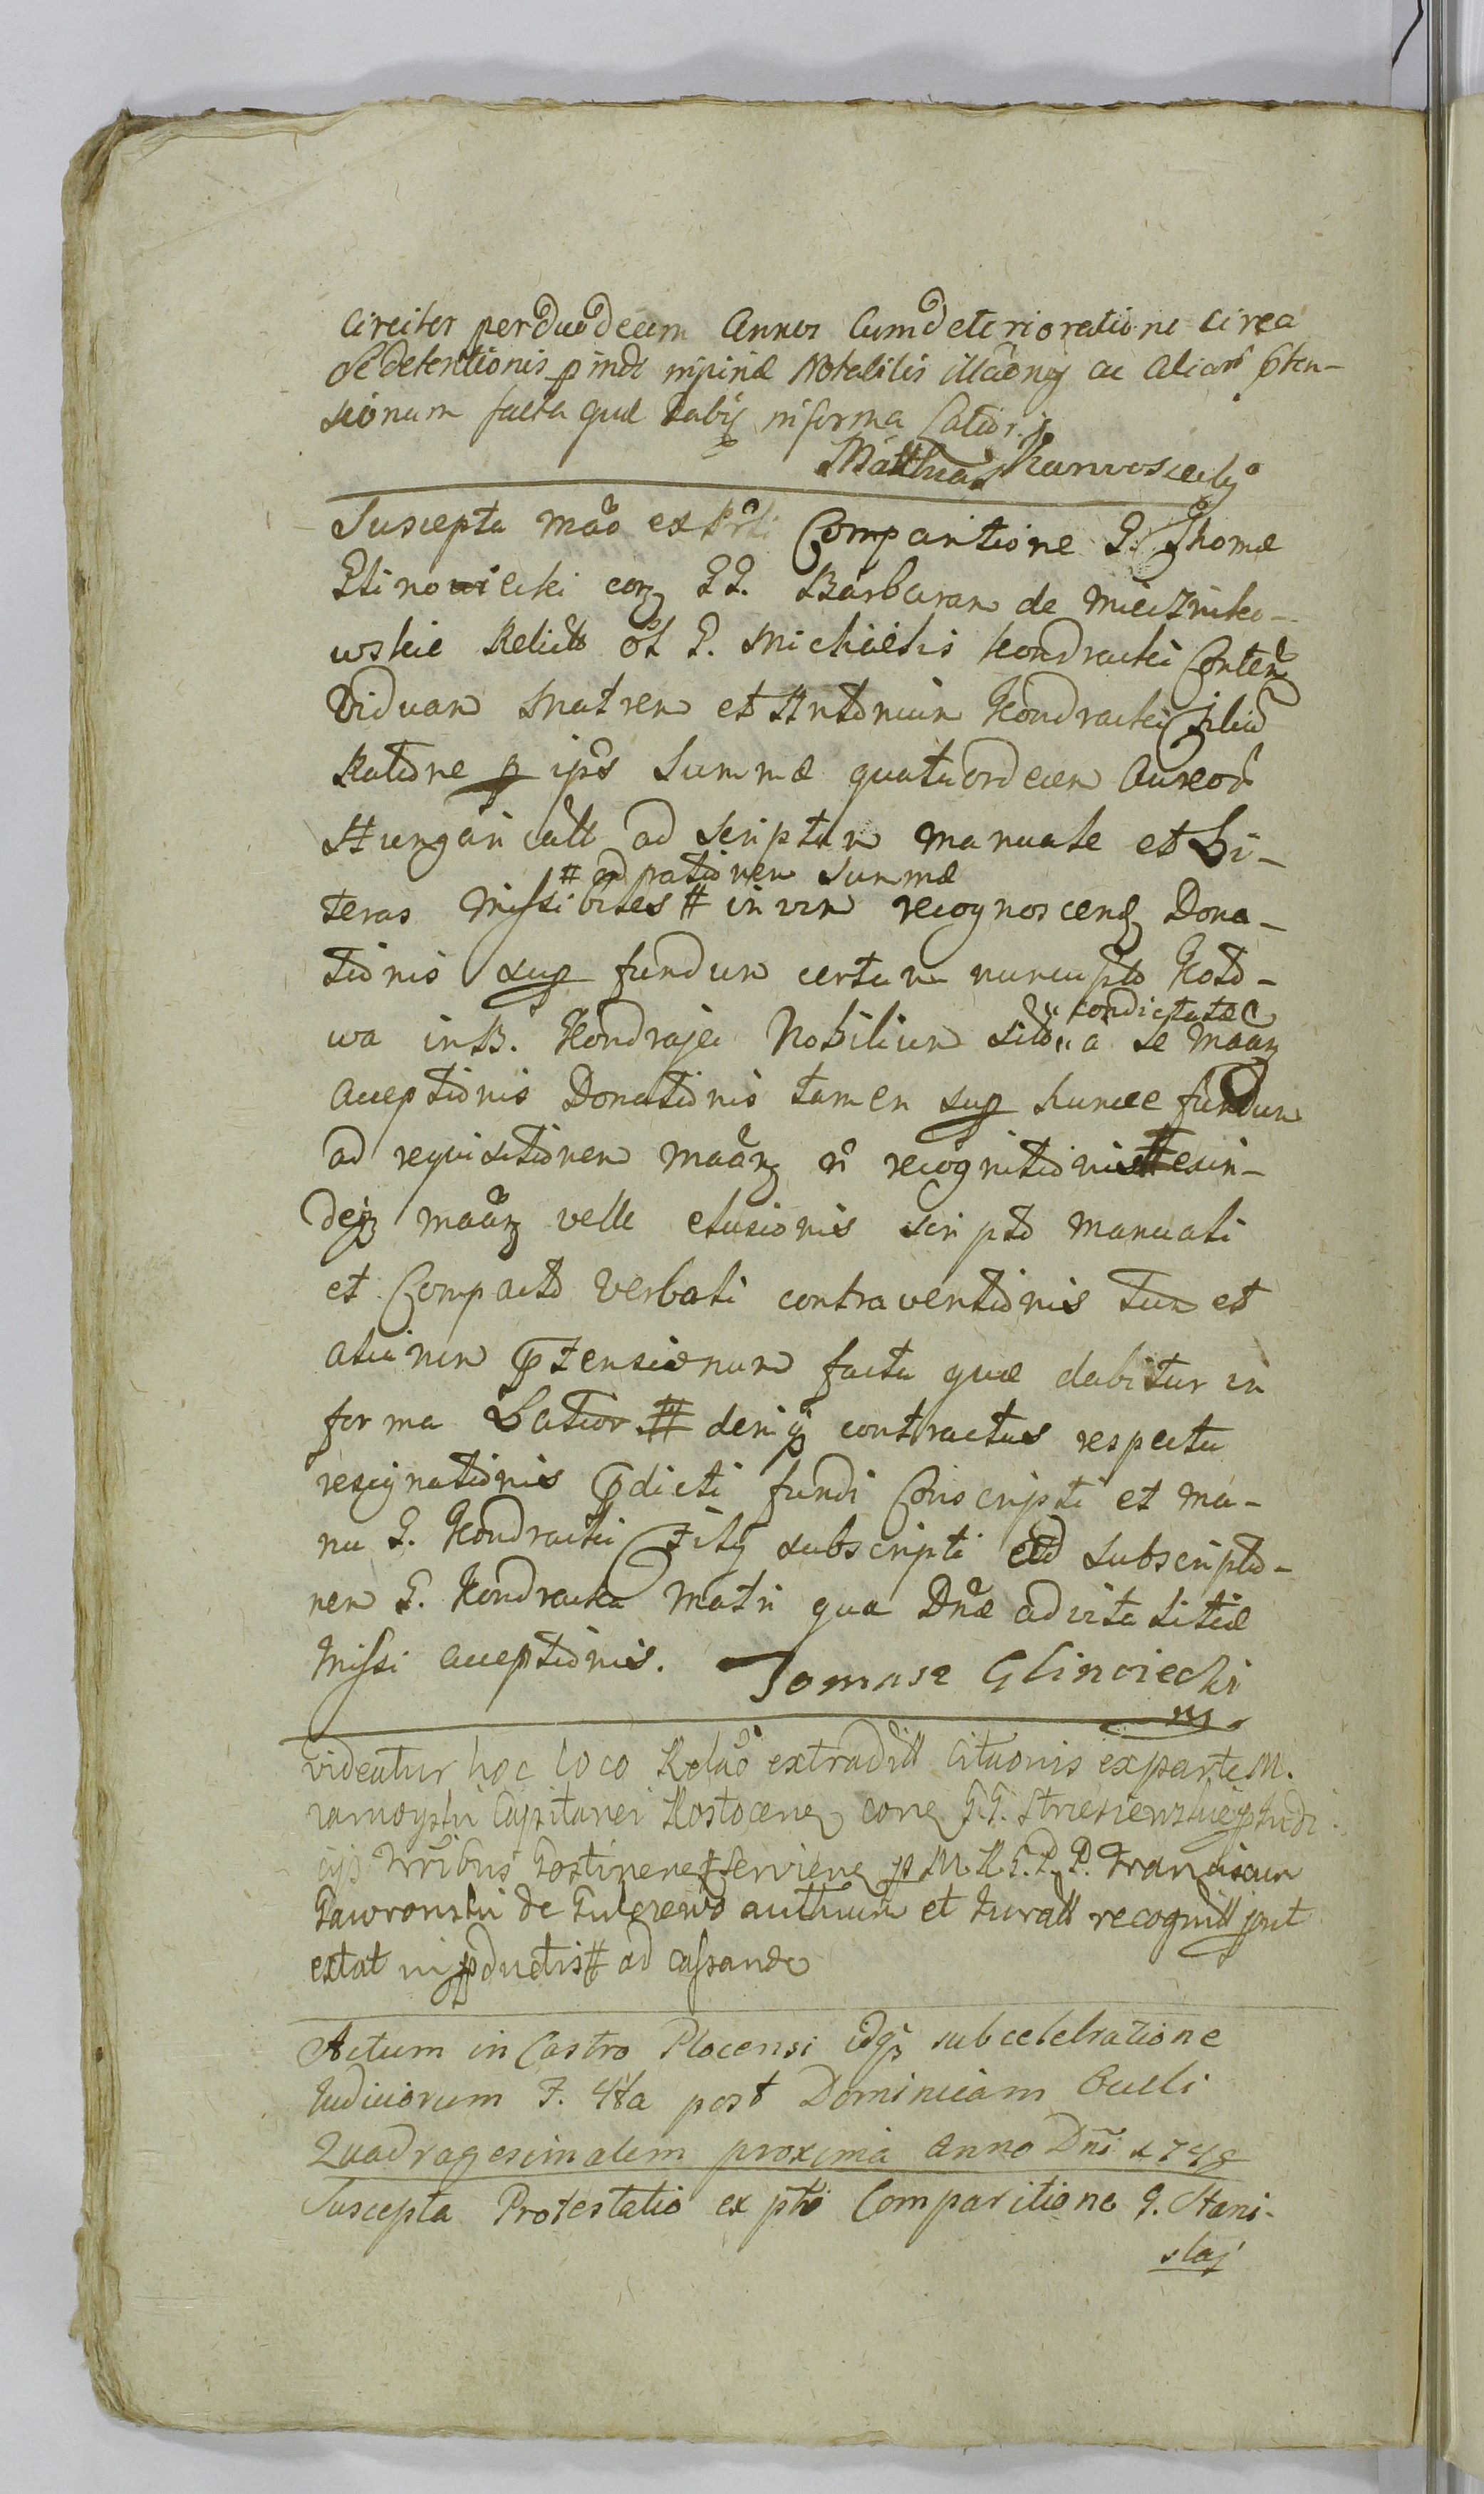 Circiter per duodecim Annos Cum deterioratione circa
se detentionis p indt Notabilis illãonis ac aliarũ ꝑten-
sionum facta quæ dabiţ in forma Latiori
Matthias Karwosiecky
Suscepta mãõ ex Prti Comparitione G. Thomæ
Glinowiecki con̨ GG. Barbaram de Mieczniko-
wskie Relictã ol G. Michaelis Kondracki Conten̨
Viduam Matrem et Antonium Kondracki Filiũ
Ratione ꝑ ipso Summæ quatuordecim Aureorũ
Hungaricall ad Scriptum manuale et Li-
# ad rationem Summæ
teras Missibiles # in vim recognoscen̨ Dona-
tionis sup fundum certum nuncupto Koto-
condictatæ
wa in B. Kondrajec Nobilium sito " a se Maan̨
Acceptionis Donationis tamen sup hunce fundum
ad requisitionem maan̨ ñ recognitionis # exin-
deq̨ maan̨ velle elusionis scripto manuali
et Compacto Verbali contraventionis Tum et
aliarum ꝑtensionum facta quæ dabitur in
forma Latior # deniq̨ contractus respectu
resignationis ꝑdicti fundi Conscripti et ma-
nu G. Kondracki Filij subscripti ad subscriptio-
nem G. Kondracka Matri qua Dnæ advitalitiæ
Missi acceptionis. Tomasz Glinoiecki
mp
Videatur hoc loco Relaõ extraditt Cita͠onis ex parte M.
Zamoyski Capitanei Rostocen̨ con̨ GG. Strzeszewskie ꝑ Judi
cijs Trribus Gostinen̨ Servien̨ ꝑ M R G. P. P. Franciscum
Gawronski de authum et Juratt recognitt prout
extat in ꝑductis # ad cassand
Actum in Castro Plocensi idq̨ sub celebratione
Judiciorum F. 4ta post Dominicam Oculi
Quadragesimalem proxima Anno Dni 1748
Suscepta Protestatio ex ptri Comparitione G. Stani-
slaj